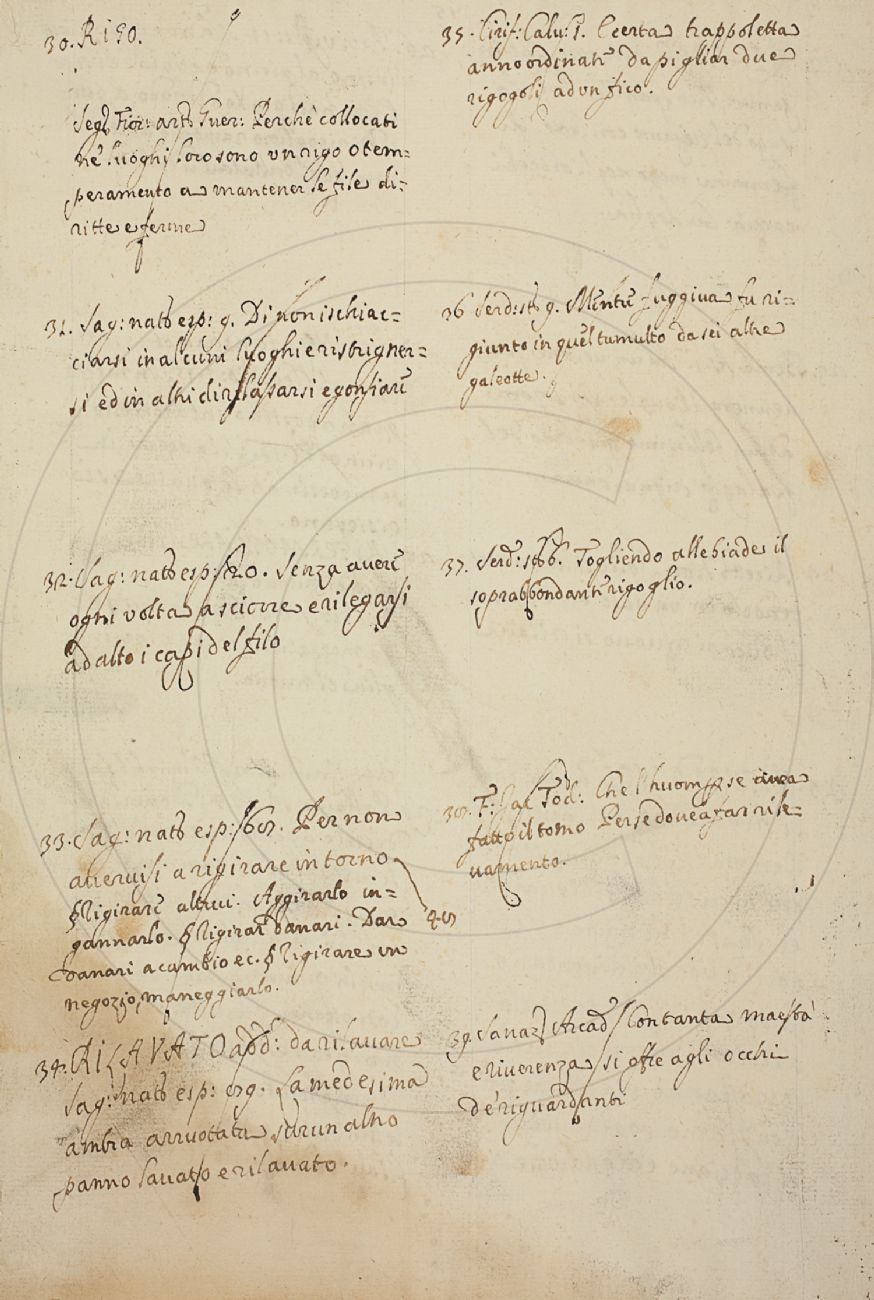 30. RIGO.
Segr. Fior: art: Guer: Perchè collocati
ne' luoghi loro sono un rigo o tem=
peramento a mantener le file di=
ritte e ferme
31. Sag: nat: esp: 9. Di non ischiac=
ciarsi in alcuni luoghi e ristrigner=
si ed in altri di rilassarsi e gonfiare
32. Sag: nat: esp: 120. Senza avere
ogni volta a sciorre e rilegarsi
ad alto i capi del filo
33. Sag: nat: esp: Per non
avervisi a rigirare intorno
§ Rigirare altrui. Aggirarlo in=
gannarlo. § Rigirar danari. Dar
danari a cambio ec. § Rigirare un
negozio, maneggiarlo.
34. RILAVATO add: da rilavare
Sag: nat: esp: La medesima
ambra arruotata sur un altro
panno lavato e rilavato.
35. Cirif: Calv: Certa trappoletta
anno ordinata da pigliar due
rigogoli ad un fico.
36 Serd: st: 9. Mentre fuggiva fu ri=
giunto in quel tumulto da sei altre
galeotte.
37. Serd: st: 6. Togliendo alle biade il
soprabbondante rigoglio.
38. F: Jac: Tod: Che l'huom per se avea
fatto il tomo Per se dovea far rile=
vamento.
39. Sanaz: Arcad: Con tanta maestà
e riverenza si offre agli occhi
de' riguardanti